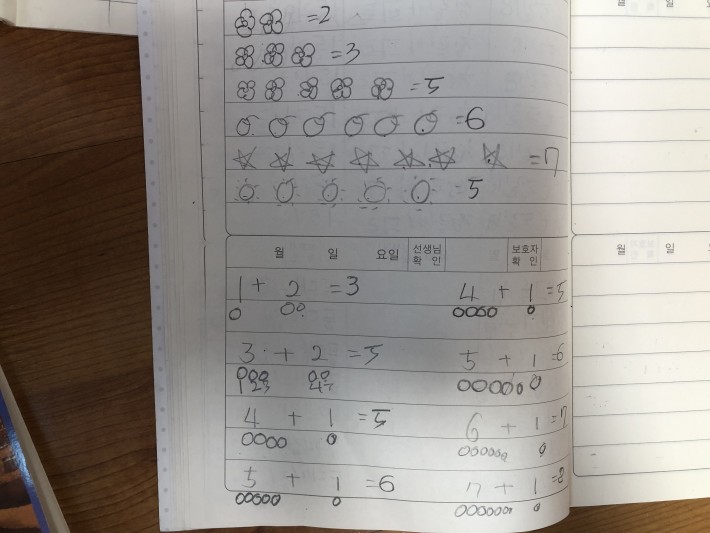 =2
=3
=5
=6
=7
=5
월 일 요일 선생님 확인 보호자 확인
1 + 2 =3 4 + 1 =5
3 + 2 =5 5 + 1 =6
1 2 3 4 5
4 + 1 =5 6 + 1 =7
5 + 1 =6 7 + 1 =8
월 일